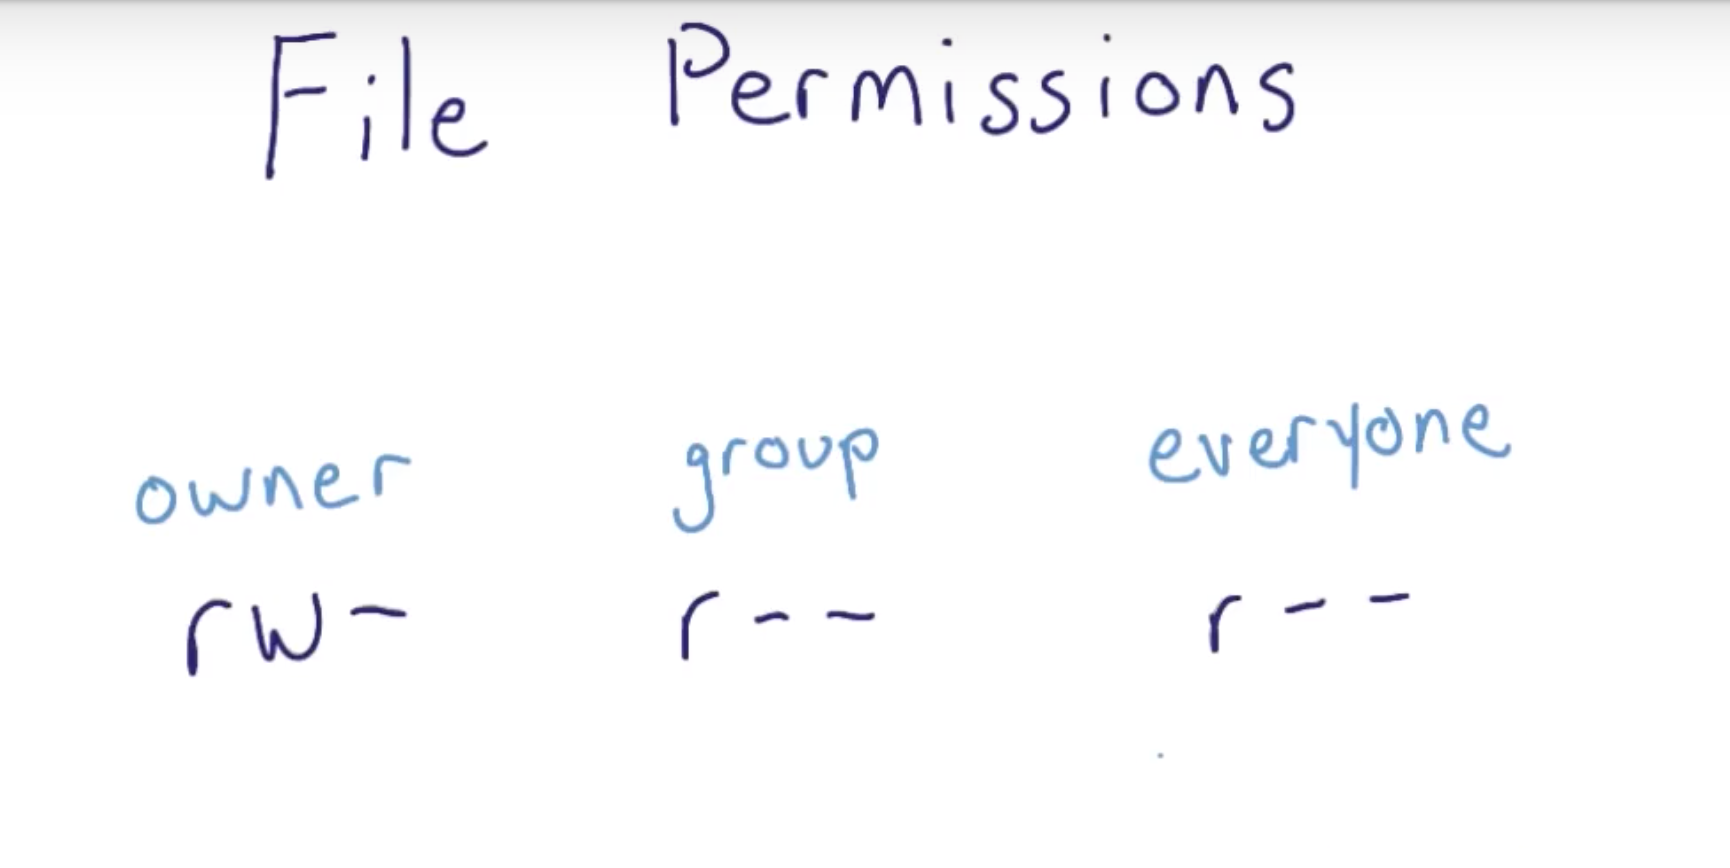 File Permissions
owner group everyone
rw- r-- r--